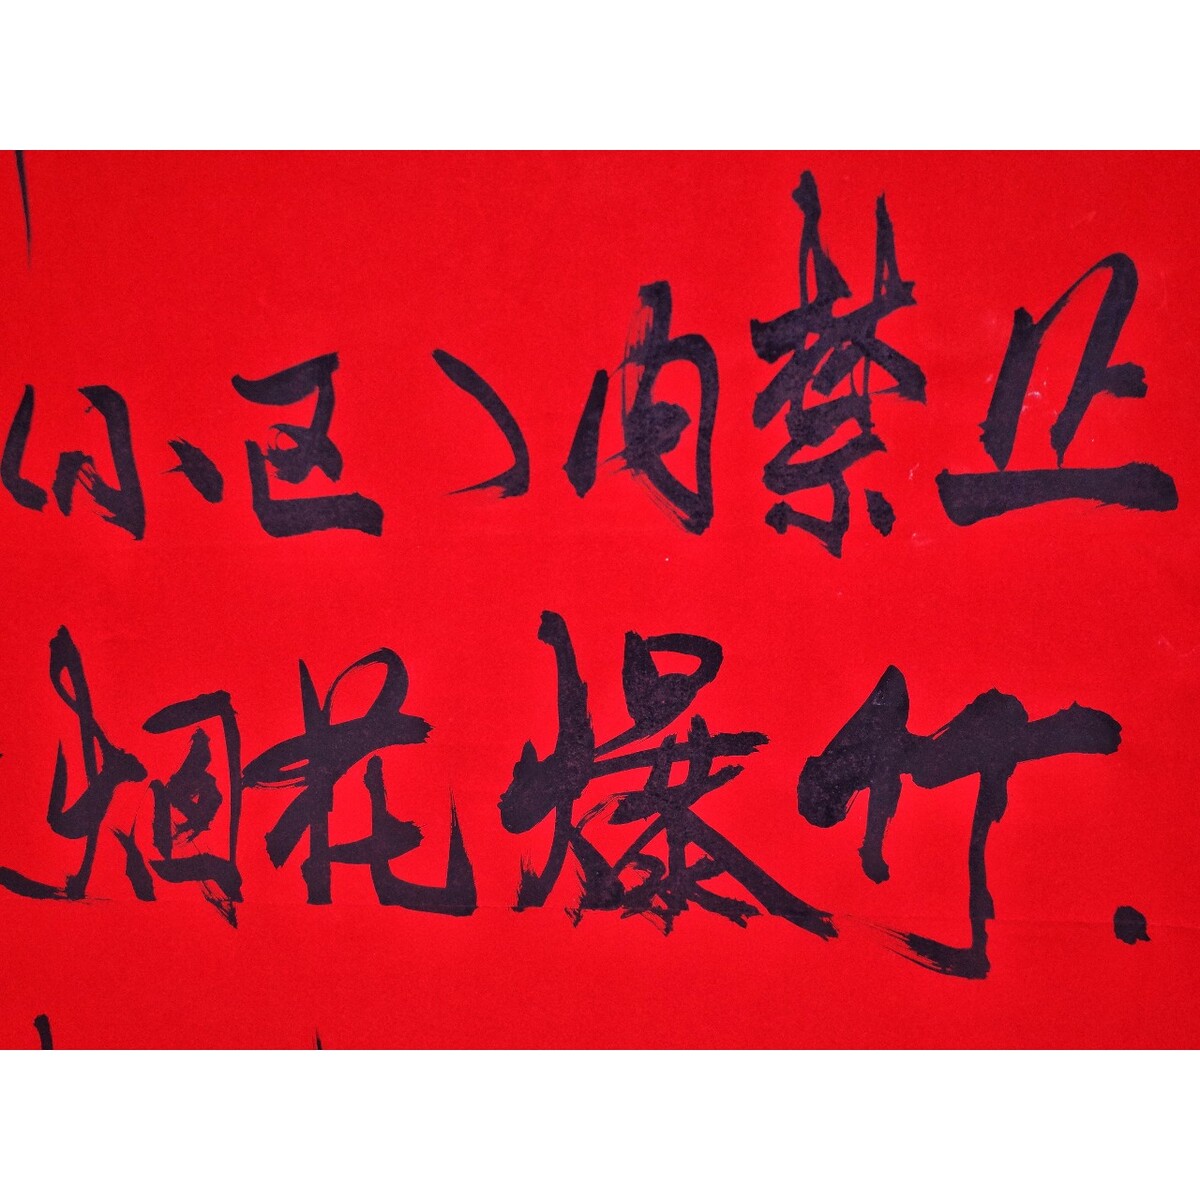 (小区)内禁止
烟花爆竹.